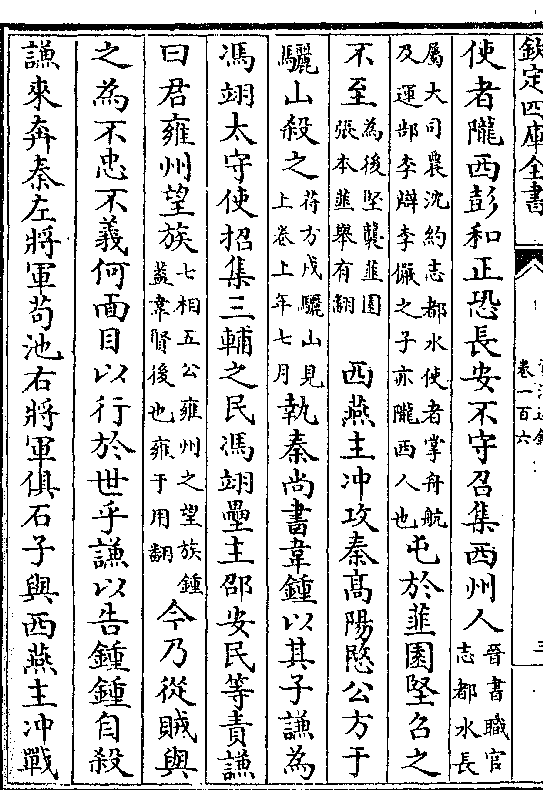 欽定四庫全書
卷一百六
使者隴西彭和正恐長安不守召集西州人晉書職官志都水長
屬大司農沈約志都水使者掌舟航及運部李辯李儼之子亦隴西人也屯於韮園堅召之
不至為後堅襲韮園張本韮舉有翻 西燕主冲攻秦髙陽愍公方于
驪山殺之苻方戍驪山見上卷上年七月執秦尚書韋鍾以其子謙為
馮翊太守使招集三輔之民馮翊壘主邵安民等責謙
曰君雍州望族七相五公雍州之望族鍾葢韋賢後也雍于用翻今乃從賊與
之為不忠不義何面目以行於世乎謙以告鍾鍾自殺
謙來奔秦左將軍茍池右將軍俱石子與西燕主冲戰